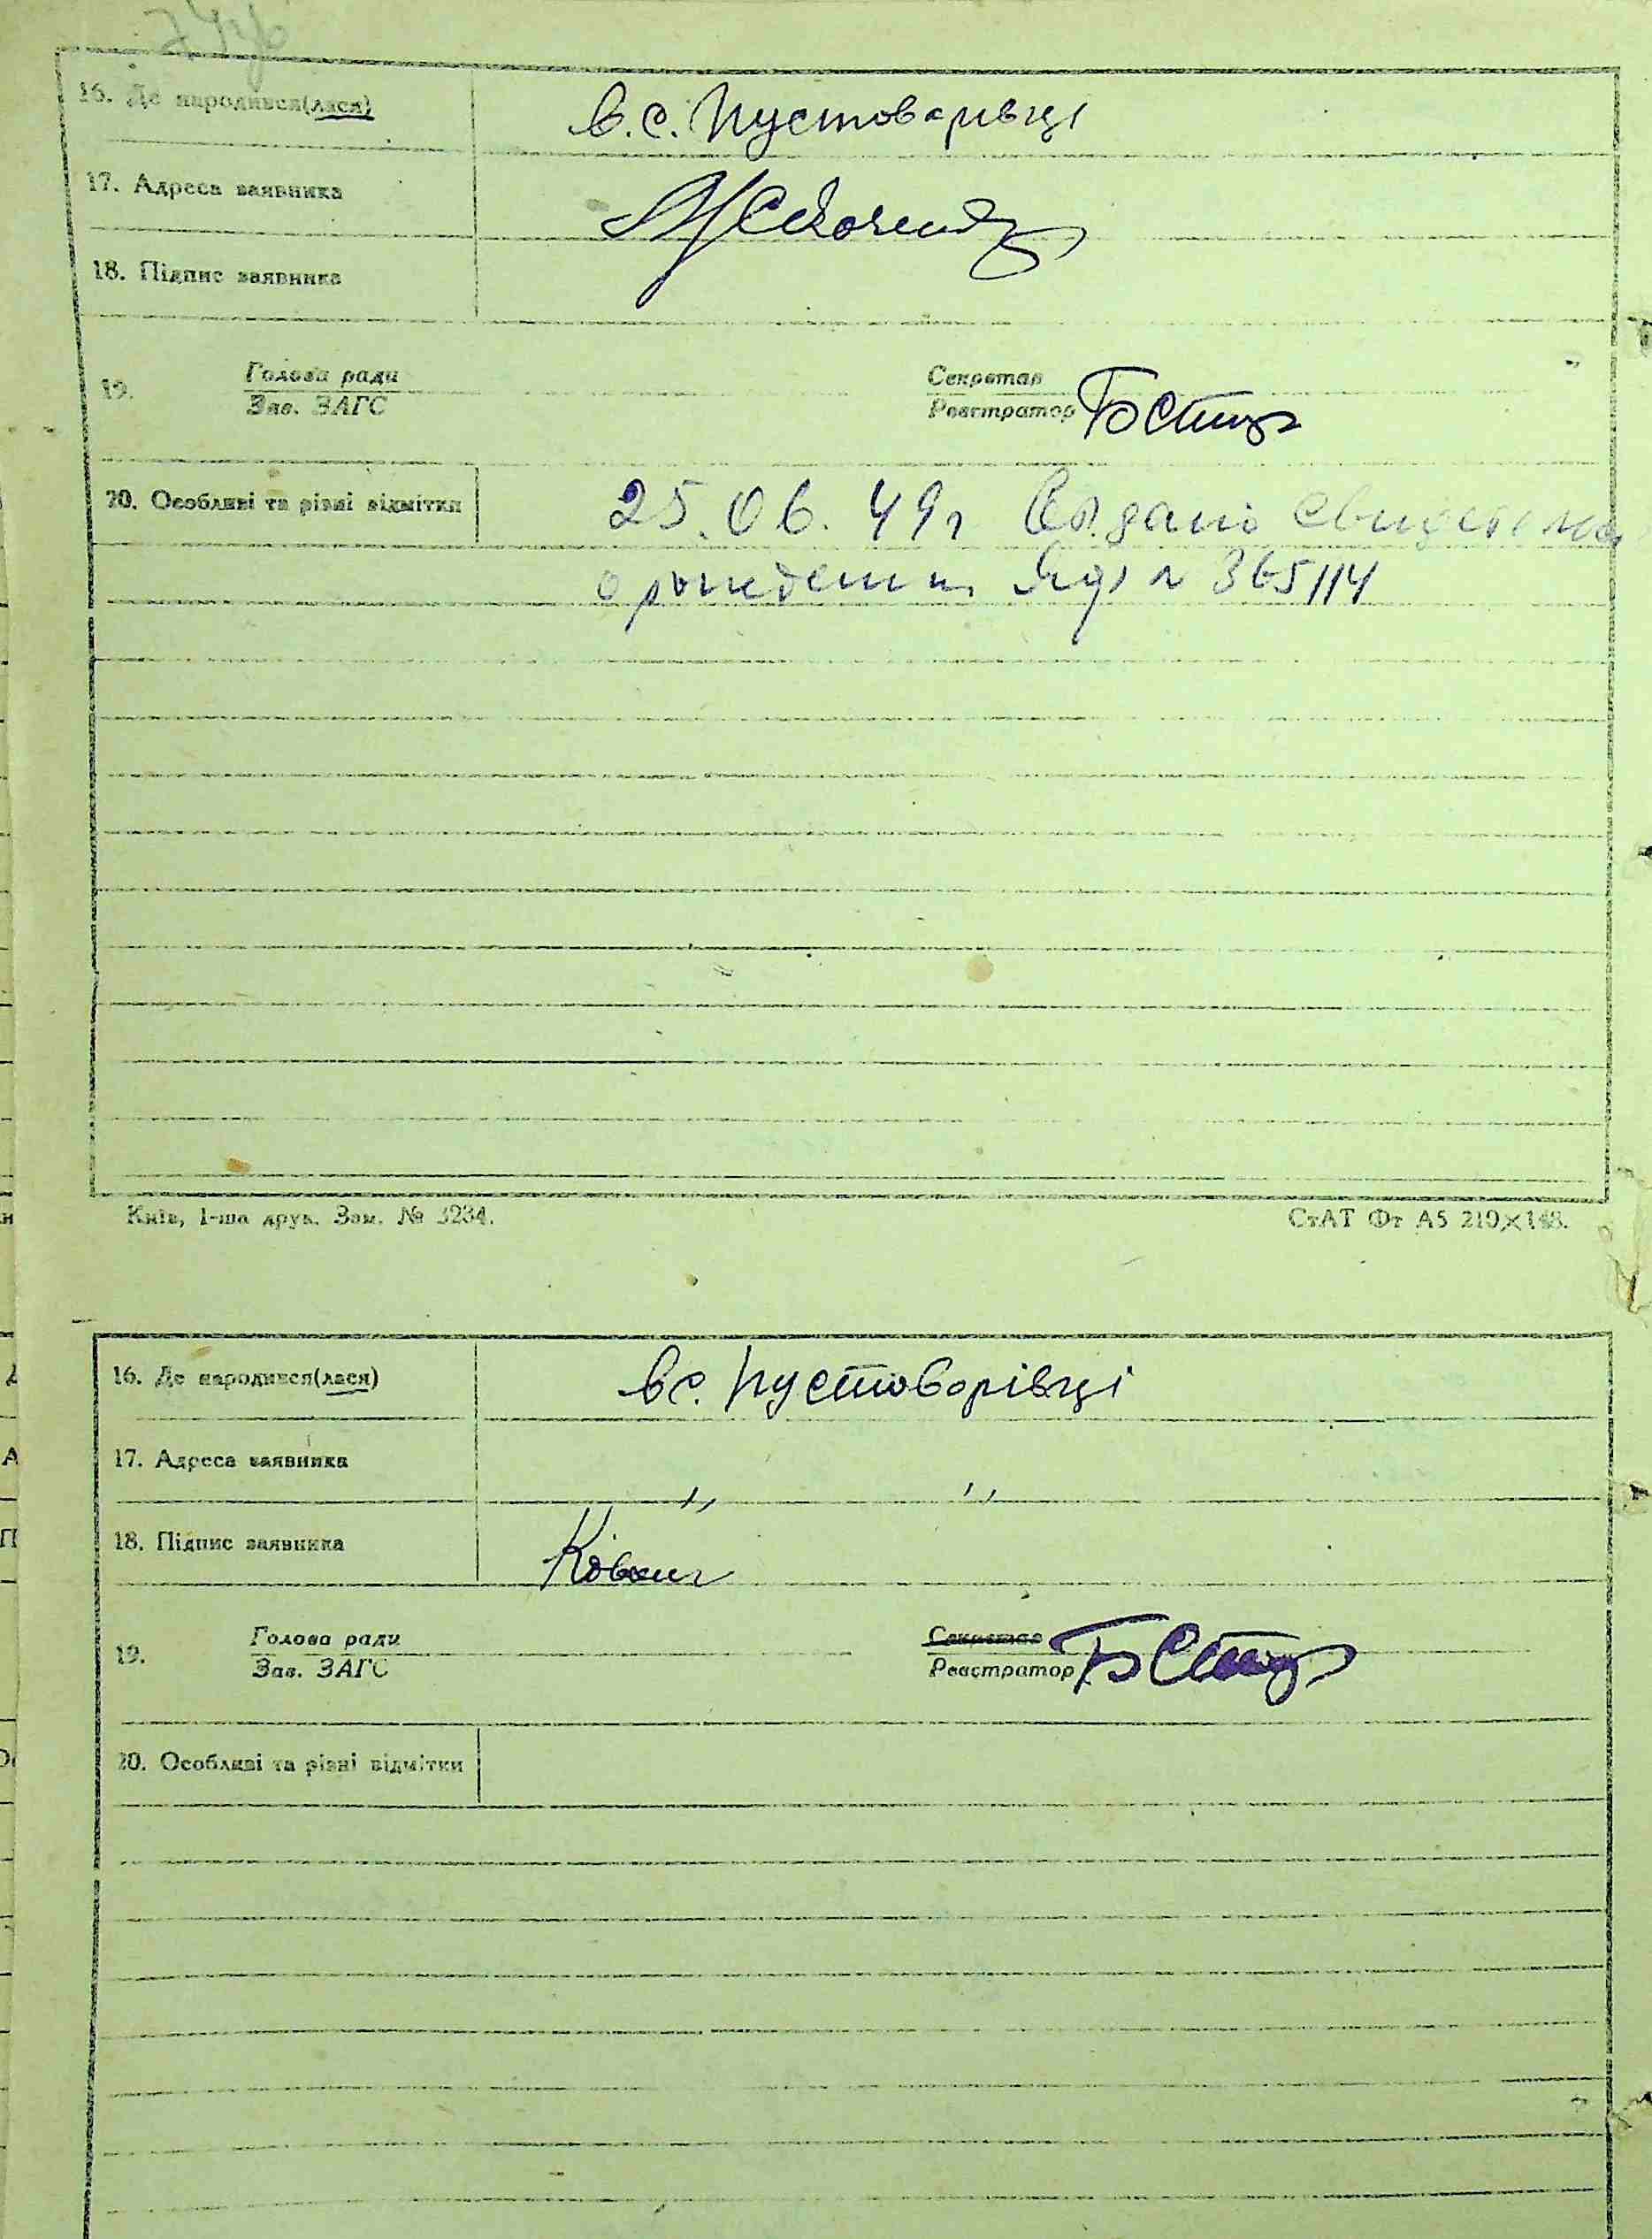 16. Де народився(лася) в.с. Пустоварівці
17. Адреса заявника
18. Підпис заявника
19. Голова ради Секретар
Зав. ЗАГС Реєстратор
20. Особливі та різні відмітки 25.06.49г
о рождении № 365114
Київ, 1-ша друк. Зам. № 3234. СтАТ Фт А5 210×148.
16. Де народився(лася) в с. Пустоварівці
17. Адреса заявника „ „
18. Підпис заявника
19. Голова ради Секретар
Зав. ЗАГС Реєстратор
20. Особливі та різні відмітки